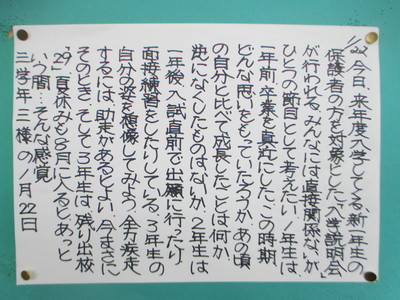 1/22 今日、来年度入学してくる新1年生の
保護者の方を対象とした「入学説明会」
が行われる。みんなには直接関係ないが、
ひとつの節目として考えたい。1年生は、
一年前、卒業を真近にしたこの時期、
どんな思いをもっていただろうか。あの頃
の自分と比べて成長したことは何か、
逆になくしたものはないか。2年生は、
一年後、入試直前で出願に行ったり、
面接練習をしたりしている。3年生の
自分の姿を想像してみよう。全力疾走
するには、助走があるとよい。今まさに
そのとき。そして3年生は、残り出校
「29」。夏休みも8月に入るとあっと
いう間…そんな感覚。
三学年三様の1月22日